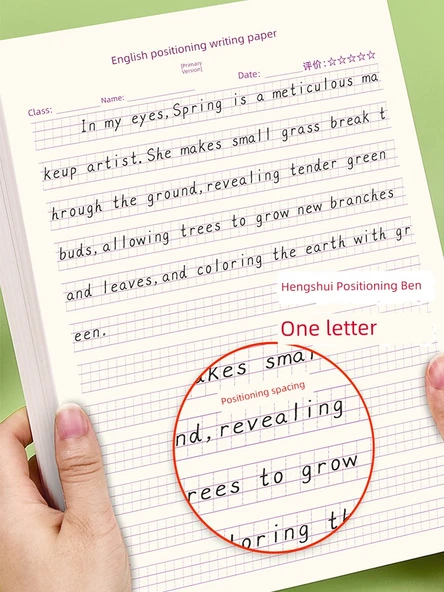 English positioning writing paper
[Primary
Version]
Class: Name: Date: 评价:☆☆☆☆☆
In my eyes,Spring is a meticulous ma
keup artist.She makes small grass break t
hrough the ground,revealing tender green
buds,allowing trees to grow new branches
and leaves,and coloring the earth with gr
een.
Hengshui Positioning Ben
One letter
akes smal
Positioning spacing
nd,revealing
rees to grow
loring th